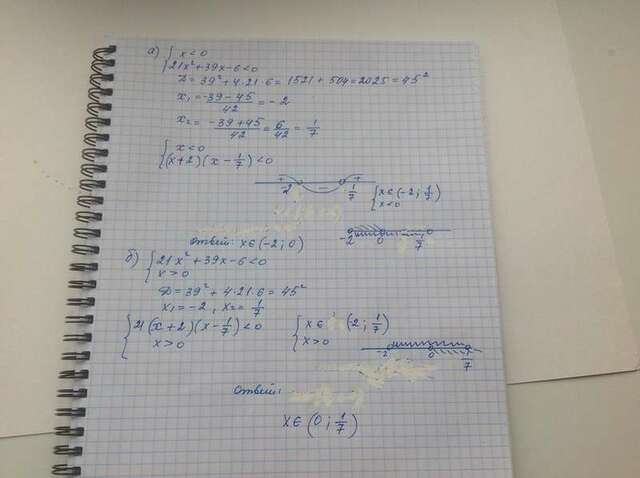 а) { x < 0
{ 21x² + 39x - 6 < 0
D = 39² + 4·21·6 = 1521 + 504 = 2025 = 45²
x₁ = (-39 - 45)/42 = -2
x₂ = (-39 + 45)/42 = 6/42 = 1/7
{ x < 0
{ (x + 2)(x - 1/7) < 0
+ - +
-2 1/7
{ x ∈ (-2; 1/7)
{ x < 0
-2 0 1/7
Ответ: x ∈ (-2; 0)
б) { 21x² + 39x - 6 < 0
{ x > 0
D = 39² + 4·21·6 = 45²
x₁ = -2, x₂ = 1/7
{ 21(x + 2)(x - 1/7) < 0
{ x > 0
{ x ∈ (-2; 1/7)
{ x > 0
-2 0 1/7
Ответ:
x ∈ (0; 1/7)